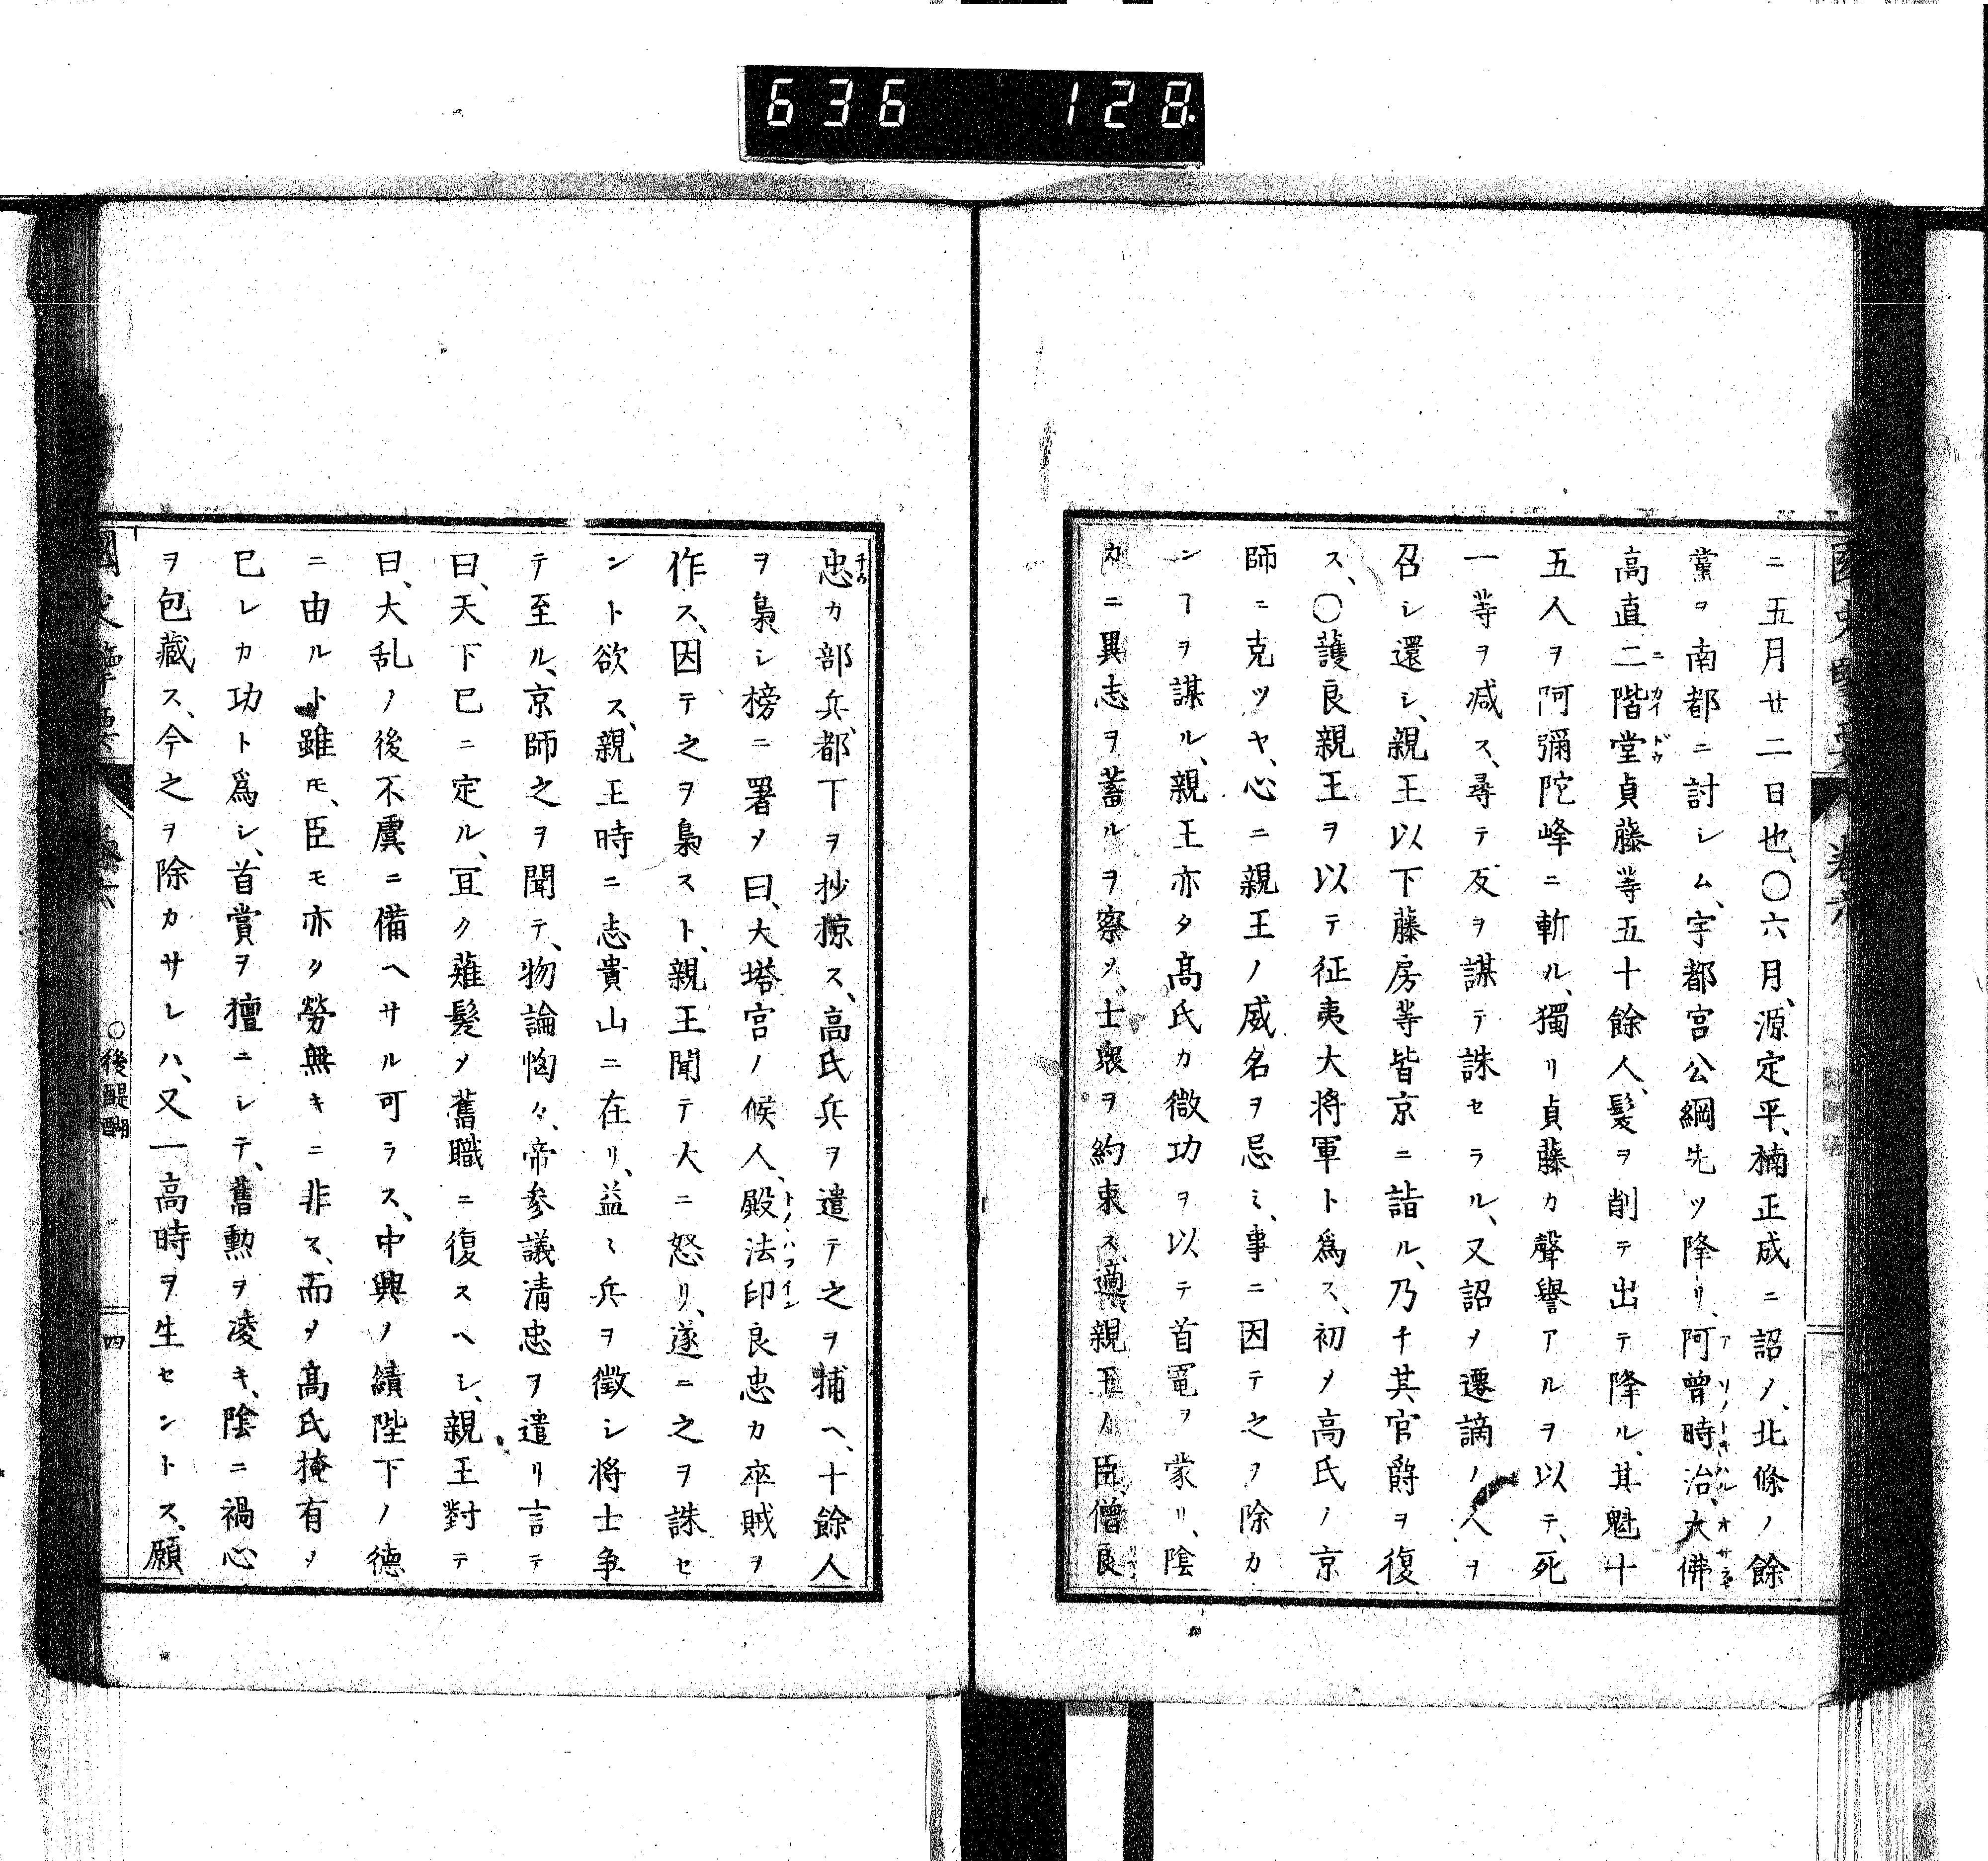 636 128
ニ五月廿二日也、〇六月、源定平、楠正成ニ詔ノ、北條ノ餘
黨ヲ南都ニ討シム、宇都宮公綱先ツ降リ、阿曾時治、大佛
高直二階堂貞藤等五十餘人、髪ヲ削テ出テ降ル、其魁十
五人ヲ阿彌陀峰ニ斬ル、獨リ貞藤カ聲譽アルヲ以テ、死
一等ヲ減ス、尋テ反ヲ謀テ誅セラル、又詔ヲ遷謫ノ人ヲ
召シ還シ、親王以下藤房等皆京ニ詣ル、乃チ其官爵ヲ復
ス、〇護良親王ヲ以テ征夷大将軍ト爲ス、初メ高氏ノ京
師ニ克ツヤ、心ニ親王ノ威名ヲ忌ミ、事ニ因テ之ヲ除カ
ンヿヲ謀ル、親王亦タ高氏カ微功ヲ以テ首寵ヲ蒙リ、陰
カニ異志ヲ蓄ルヲ察ソ、士衆ヲ約束ス、適親王ノ臣、僧良
忠カ部兵、都下ヲ抄掠ス、高氏兵ヲ遣テ之ヲ捕ヘ、十餘人
ヲ梟シ榜ニ署メ曰、大塔宮ノ候人、殿法印良忠カ卒賊ヲ
作ス、因テ之ヲ梟スト、親王聞テ大ニ怒リ、遂ニ之ヲ誅セ
ント欲ス、親王時ニ志貴山ニ在リ、益ミ兵ヲ徴シ将士争
テ至ル、京師之ヲ聞テ、物論恟々、帝参議清忠ヲ遣リ言テ
曰、天下已ニ定ル、宜ク薙髮メ舊職ニ復スヘシ、親王對テ
曰、大乱ノ後不虞ニ備ヘサル可ラス、中興ノ績陛下ノ德
ニ由ルト雖モ、臣モ亦タ勞無キニ非ス、而ヲ高氏掩有ヲ
已レカ功ト爲シ、首賞ヲ擅ニシテ、舊勲ヲ凌キ、陰ニ禍心
ヲ包藏ス、今之ヲ除カサレハ、又一高時ヲ生セントス、願
〇後醍醐 四